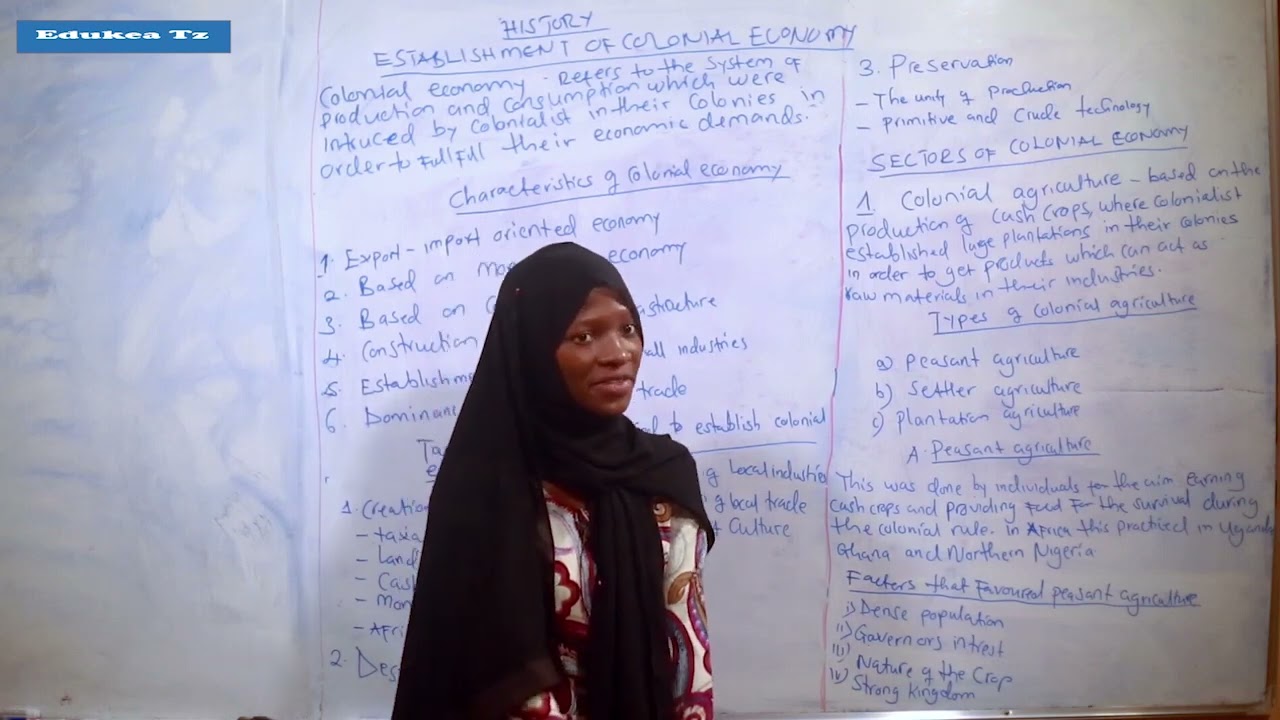 Edukea Tz
HISTORY
ESTABLISHMENT OF COLONIAL ECONOMY
Colonial economy - Refers to the system of
production and consumption which were
intruced by colonialist in their colonies in
order to fullfill their economic demands.
Characteristics of colonial economy
1. Export - import oriented economy
2. Based on economy
3. Based on
4. Construction
5. Establishme all industries
6. Dominane trade
to establish colonial
g local industries
1. Creation g local trade
- taxa Culture
- Land
- Cash
- Mon
- Afri
2. Des
3. Preservation
- The unity of production
- primitive and crude technology
SECTORS OF COLONIAL ECONOMY
1. Colonial agriculture - based on the
production of cash crops, where colonialist
established large plantations in their colonies
in order to get products which can act as
raw materials in their industries.
Types of colonial agriculture
a) peasant agriculture
b) settler agriculture
c) plantation agriculture
A. Peasant agriculture
This was done by individuals for the aim earning
cash crops and providing food for the survival during
the colonial rule. in Africa this practiced in Uganda
Ghana and Northern Nigeria
Factors that favoured peasant agriculture
i) Dense population
ii) Governors intrest
iii) Nature of the crop
iv) Strong kingdom